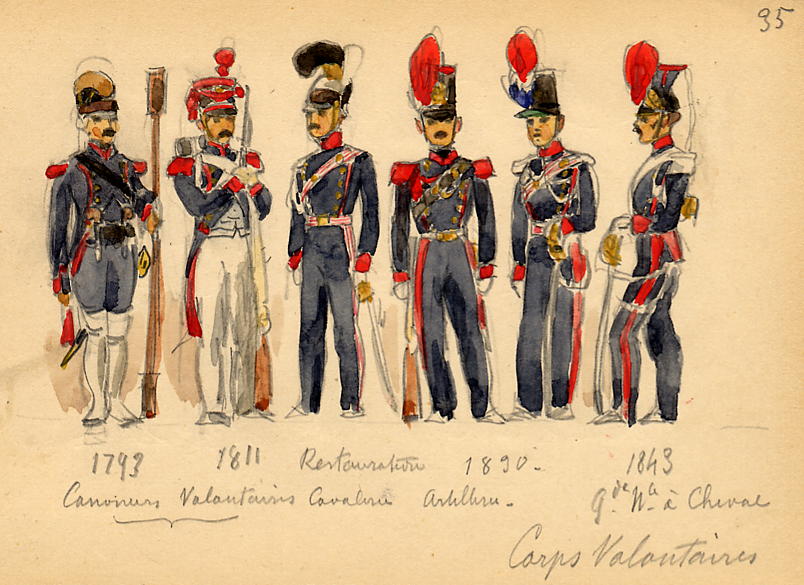 35
1793 1811 Restauration 1830-
1843
Canoniers Volontaires Cavalerie Artillerie.
Gde Nle à Cheval
Corps Volontaires